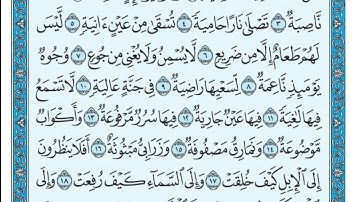 نَّاصِبَةٌ ٣ تَصْلَىٰ نَارًا حَامِيَةً ٤ تُسْقَىٰ مِنْ عَيْنٍ ءَانِيَةٍ ٥ لَّيْسَ
لَهُمْ طَعَامٌ إِلَّا مِن ضَرِيعٍ ٦ لَّا يُسْمِنُ وَلَا يُغْنِي مِن جُوعٍ ٧ وُجُوهٌ
يَوْمَئِذٍ نَّاعِمَةٌ ٨ لِّسَعْيِهَا رَاضِيَةٌ ٩ فِي جَنَّةٍ عَالِيَةٍ ١٠ لَّا تَسْمَعُ
فِيهَا لَٰغِيَةً ١١ فِيهَا عَيْنٌ جَارِيَةٌ ١٢ فِيهَا سُرُرٌ مَّرْفُوعَةٌ ١٣ وَأَكْوَابٌ
مَّوْضُوعَةٌ ١٤ وَنَمَارِقُ مَصْفُوفَةٌ ١٥ وَزَرَابِيُّ مَبْثُوثَةٌ ١٦ أَفَلَا يَنظُرُونَ
إِلَى الْإِبِلِ كَيْفَ خُلِقَتْ ١٧ وَإِلَى السَّمَآءِ كَيْفَ رُفِعَتْ ١٨ وَإِلَى